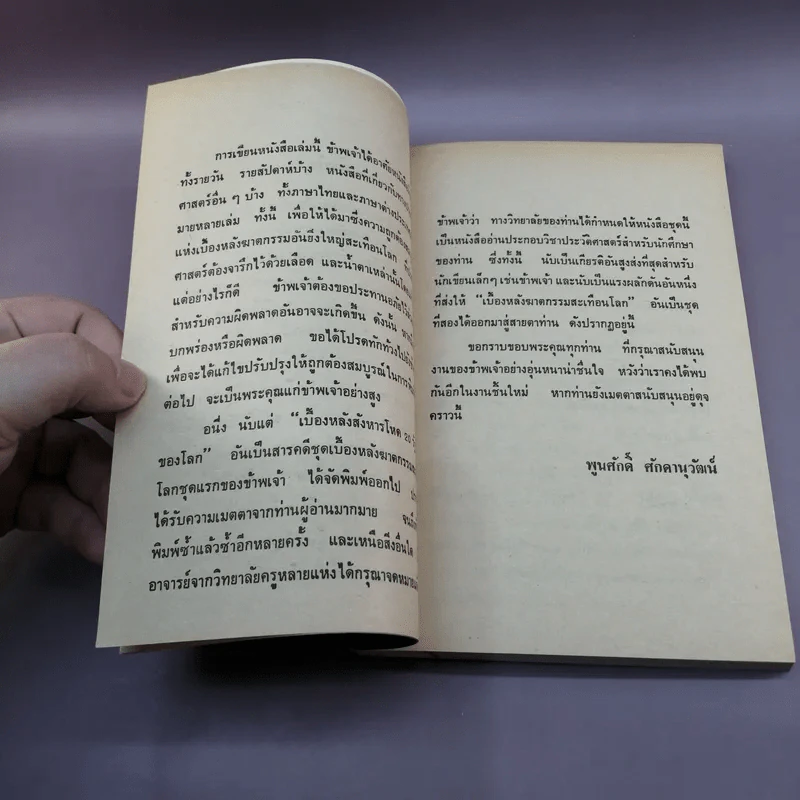 การเขียนหนังสือเล่มนี้ ข้าพเจ้าได้อาศัย
ทั้งรายวัน รายสัปดาห์บ้าง หนังสือที่เกี่ยวกับ
ศาสตร์อื่น ๆ บ้าง ทั้งภาษาไทยและภาษาต่างประเทศ
มายหลายเล่ม ทั้งนี้ เพื่อให้ได้มาซึ่งความถูกต้อง
แห่งเบื้องหลังฆาตกรรมอันยิ่งใหญ่สะเทือนโลก
ศาสตร์ต้องจารึกไว้ด้วยเลือด และน้ำตาเหล่านั้น
แต่อย่างไรก็ดี ข้าพเจ้าต้องขอประทานอภัยไว้
สำหรับความผิดพลาดอันอาจจะเกิดขึ้น ดังนั้น
บกพร่องหรือผิดพลาด ขอได้โปรดทักท้วงไป
เพื่อจะได้แก้ไขปรับปรุงให้ถูกต้องสมบูรณ์ในการ
ต่อไป จะเป็นพระคุณแก่ข้าพเจ้าอย่างสูง
อนึ่ง นับแต่ "เบื้องหลังสังหารโหด 20
ของโลก" อันเป็นสารคดีชุดเบื้องหลังฆาตกรรม
โลกชุดแรกของข้าพเจ้า ได้จัดพิมพ์ออกไป
ได้รับความเมตตาจากท่านผู้อ่านมากมาย
พิมพ์ซ้ำแล้วซ้ำอีกหลายครั้ง และเหนือสิ่งอื่นใด
อาจารย์จากวิทยาลัยครูหลายแห่งได้กรุณาจดหมาย
ข้าพเจ้าว่า ทางวิทยาลัยของท่านได้กำหนดให้หนังสือชุดนี้
เป็นหนังสืออ่านประกอบวิชาประวัติศาสตร์สำหรับนักศึกษา
ของท่าน ซึ่งทั้งนี้ นับเป็นเกียรติอันสูงส่งที่สุดสำหรับ
นักเขียนเล็กๆ เช่นข้าพเจ้า และนับเป็นแรงผลักดันอันหนึ่ง
ที่ส่งให้ "เบื้องหลังฆาตกรรมสะเทือนโลก" อันเป็นชุด
ที่สองได้ออกมาสู่สายตาท่าน ดังปรากฏอยู่นี้
ขอกราบขอบพระคุณทุกท่าน ที่กรุณาสนับสนุน
งานของข้าพเจ้าอย่างอุ่นหนาน่าชื่นใจ หวังว่าเราคงได้พบ
กันอีกในงานชิ้นใหม่ หากท่านยังเมตตาสนับสนุนอยู่ดุจ
คราวนี้
พูนศักดิ์ ศักดานุวัฒน์